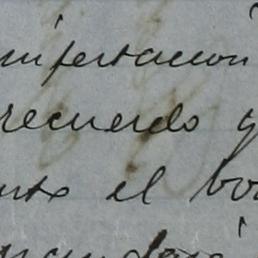 nifestacion
recuerdo y
nto el bo